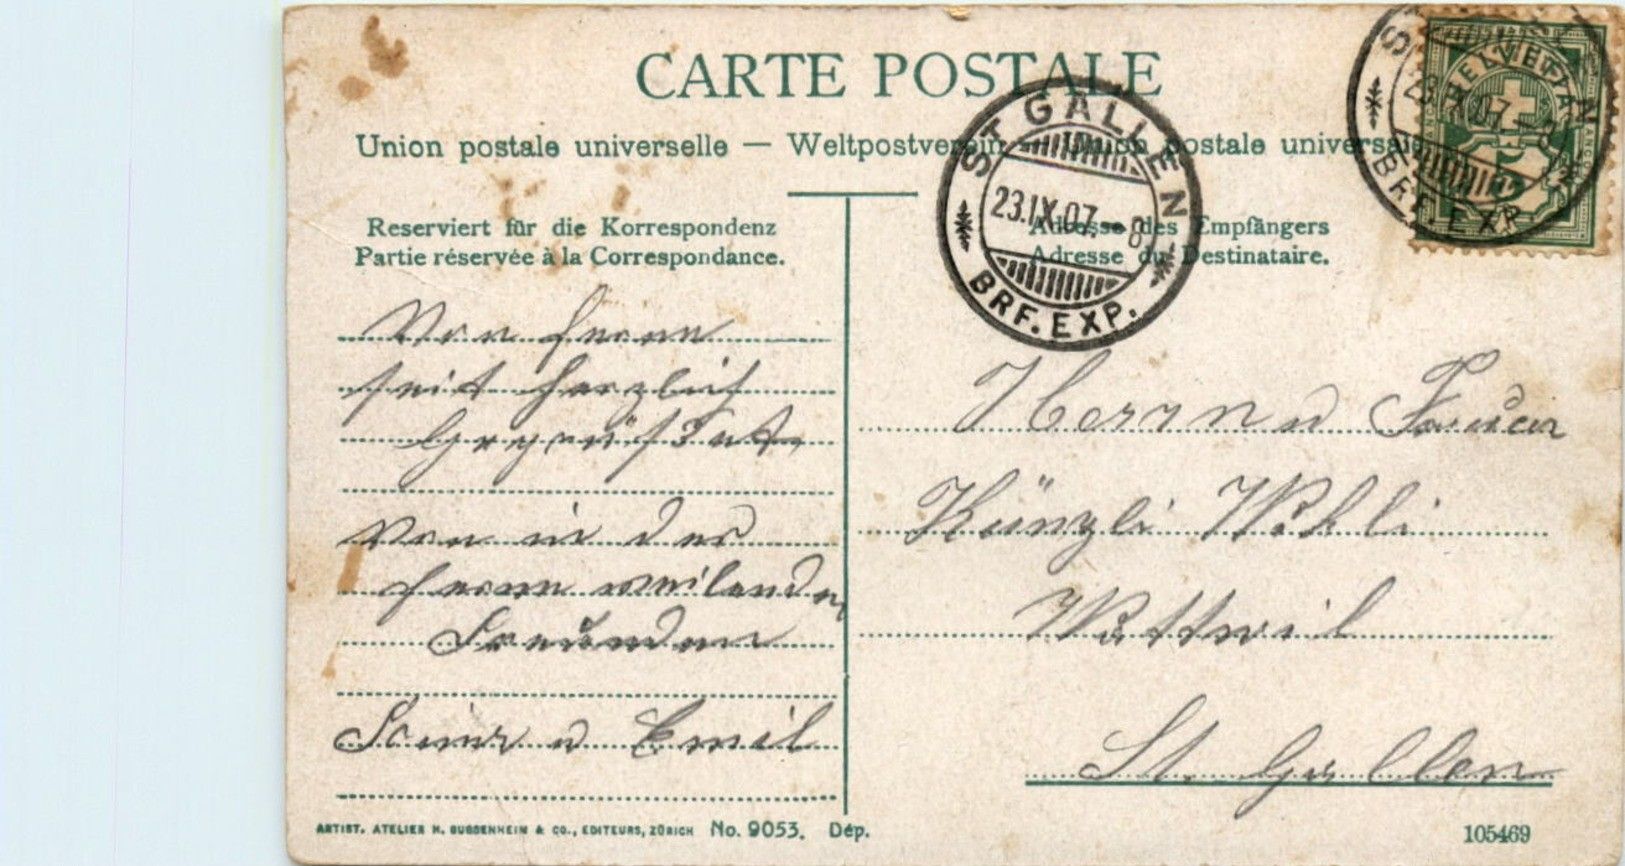 CARTE POSTALE
Union postale universelle — Weltpostverein — Union postale universelle
Reserviert für die Korrespondenz
Partie réservée à la Correspondance.
Adresse des Empfängers
Adresse du Destinataire.
ST. GALLEN
23.IX.07. — 8
BRF. EXP.
HELVETIA
5
23.IX.07
BRF. EXP.
Von ferne
seit herzlich
Gegrüßet
Von in der
ferne weilenden
Freunden
u Emil
Herrn u Frau
Künzli Wehli
Wattwil
St. Gallen
ARTIST. ATELIER H. GUGGENHEIM & CO., EDITEURS, ZÜRICH No. 9053. Dép.
105469